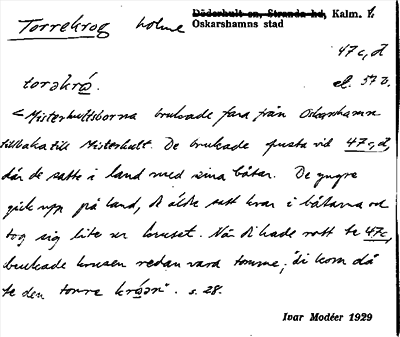 Torrekrog holme Döderhult sn, Stranda hd, Kalm. l.
Oskarshamns stad
47 c, d
torəkrǫ́. el. 57 b.
< Misterhultsborna brukade fara från Oskarshamn
tillbaka till Misterhult. De brukade pusta vid 47 c, d,
där de satte i land med sina båtar. De yngre
gick upp på land, d äldste satt kvar i båtarna od
tog sig lite ur kruset. När di hade rott te 47 c,
brukade krusen redan vara tomme; "di kom då
te den torre kröən". s. 28.
Ivar Modéer 1929